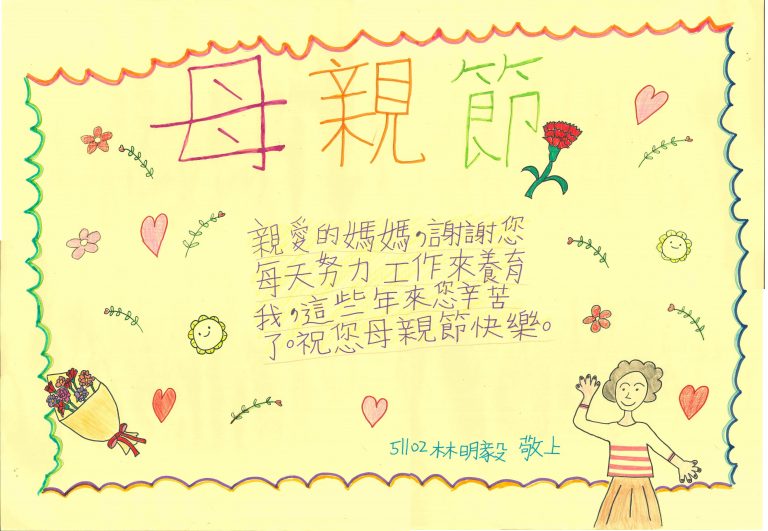 母親節
親愛的媽媽，謝謝您
每天努力工作來養育
我，這些年來您辛苦
了。祝您母親節快樂。
51102林明毅 敬上